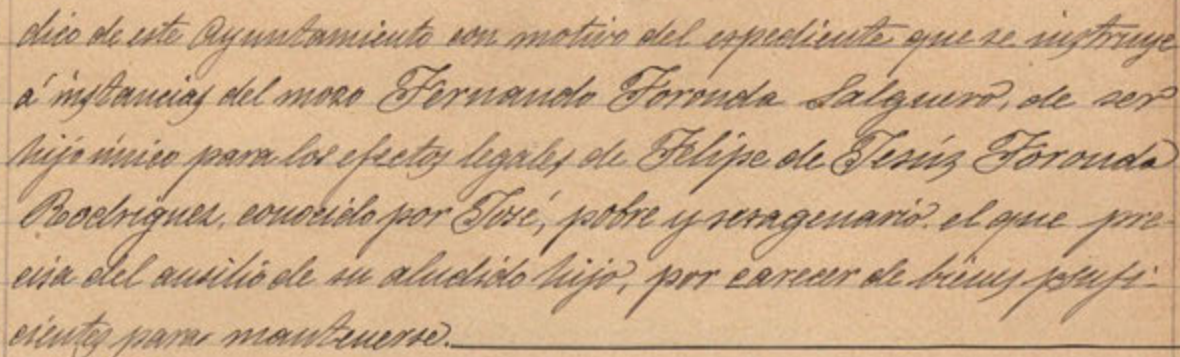 dico de este Ayuntamiento con motivo del expediente que se instruye
á instancias del mozo Fernando Foronda Salguero, de ser
hijo único para los efectos legales de Felipe de Jesús Foronda
Rodriguez, conocido por José, pobre y sexagenario, el que pre-
cisa del ausilio de su aludido hijo, por carecer de bienes sufi-
cientes para mantenerse.